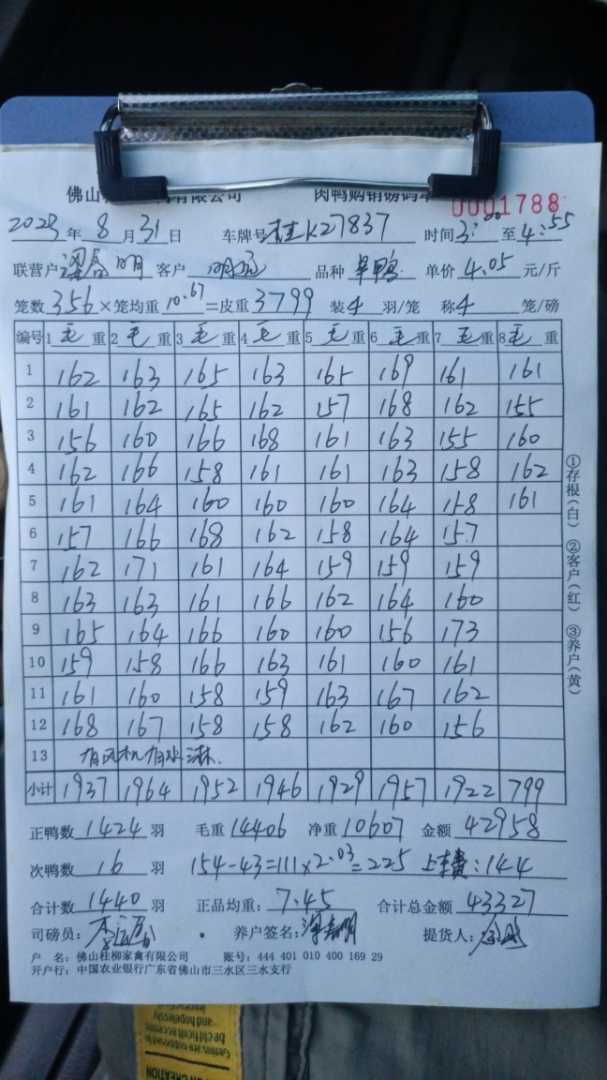 佛山 有限公司 肉鸭购销磅码单 0001788
2023年8月31日 车牌号 桂K27837 时间3:00至4:55
联营户 梁 明 客户 明 品种 旱鸭 单价4.05元/斤
笼数356×笼均重10.67=皮重3799 装4羽/笼 称4笼/磅
编号 1毛重 2毛重 3毛重 4毛重 5毛重 6毛重 7毛重 8毛重
1 162 163 165 163 165 169 161 161
2 161 162 165 162 157 168 162 155
3 156 160 166 168 161 163 155 160
4 162 166 158 161 161 163 158 162
5 161 164 160 160 160 164 158 161
6 157 166 168 162 158 164 157
7 162 171 161 164 159 159 159
8 163 163 161 166 162 164 160
9 165 164 166 160 160 156 173
10 159 158 166 163 161 160 161
11 161 160 158 159 163 167 162
12 168 167 158 158 162 160 156
13 有风机有水淋.
小计 1937 1964 1952 1946 1929 1957 1922 799
正鸭数1424羽 毛重14406 净重10607 金额42958
次鸭数16羽 154-43=111×2.03=225 上车费:144
合计数1440羽 正品均重:7.45 合计总金额43327
司磅员: 养户签名: 提货人:
户 名:佛山桂柳家禽有限公司 账号:444 401 010 400 169 29
开户行:中国农业银行广东省佛山市三水区三水支行
①存根(白) ②客户(红) ③养户(黄)